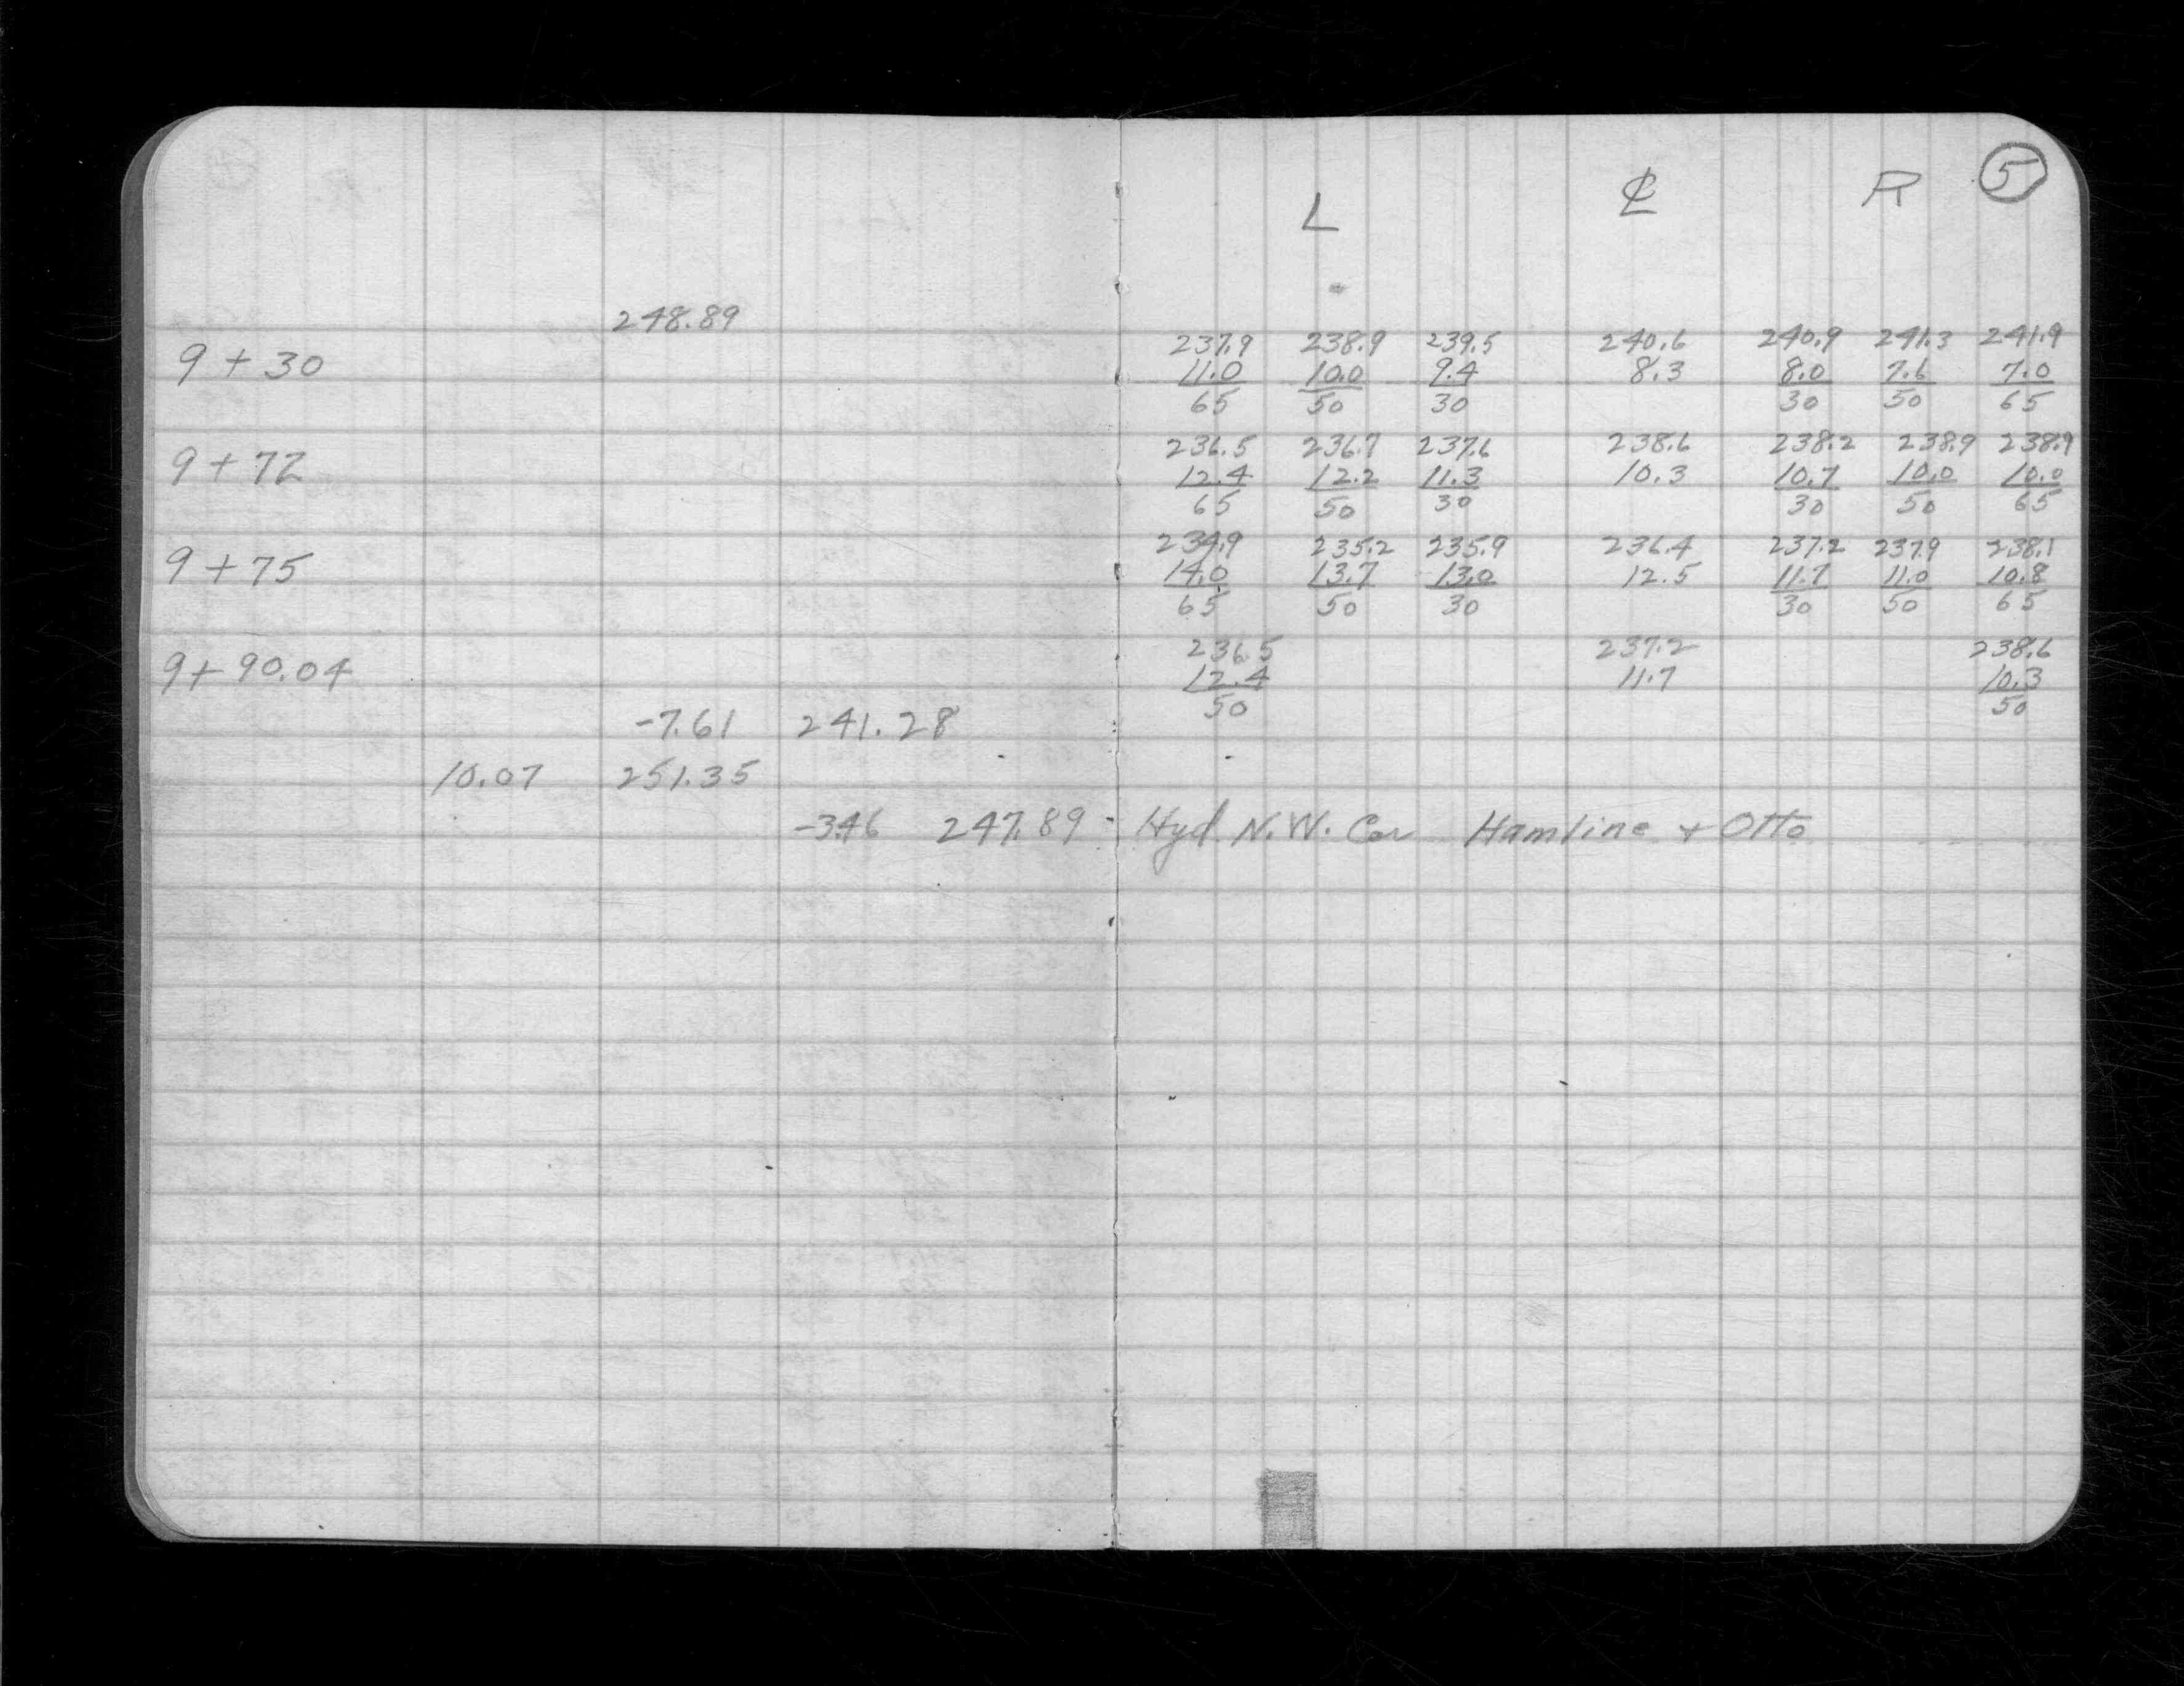 L ℄ R 5
248.89
237.9 238.9 239.5 240.6 240.9 241.3 241.9
9 + 30 11.0 10.0 9.4 8.3 8.0 7.6 7.0
65 50 30 30 50 65
236.5 236.7 237.6 238.6 238.2 238.9 238.9
9 + 72 12.4 12.2 11.3 10.3 10.7 10.0 10.0
65 50 30 30 50 65
234.9 235.2 235.9 236.4 237.2 237.9 238.1
9 + 75 14.0 13.7 13.0 12.5 11.7 11.0 10.8
65 50 30 30 50 65
236.5 237.2 238.6
9 + 90.04 12.4 11.7 10.3
50 50
-7.61 241.28
10.07 251.35
-3.46 247.89 - Hyd. N.W. Cor Hamline + Otto